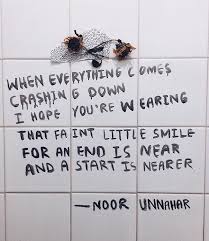 WHEN EVERYTHING COMES
CRASHING DOWN
I HOPE YOU'RE WEARING
THAT FAINT LITTLE SMILE
FOR AN END IS NEAR
AND A START IS NEARER
—NOOR UNNAHAR